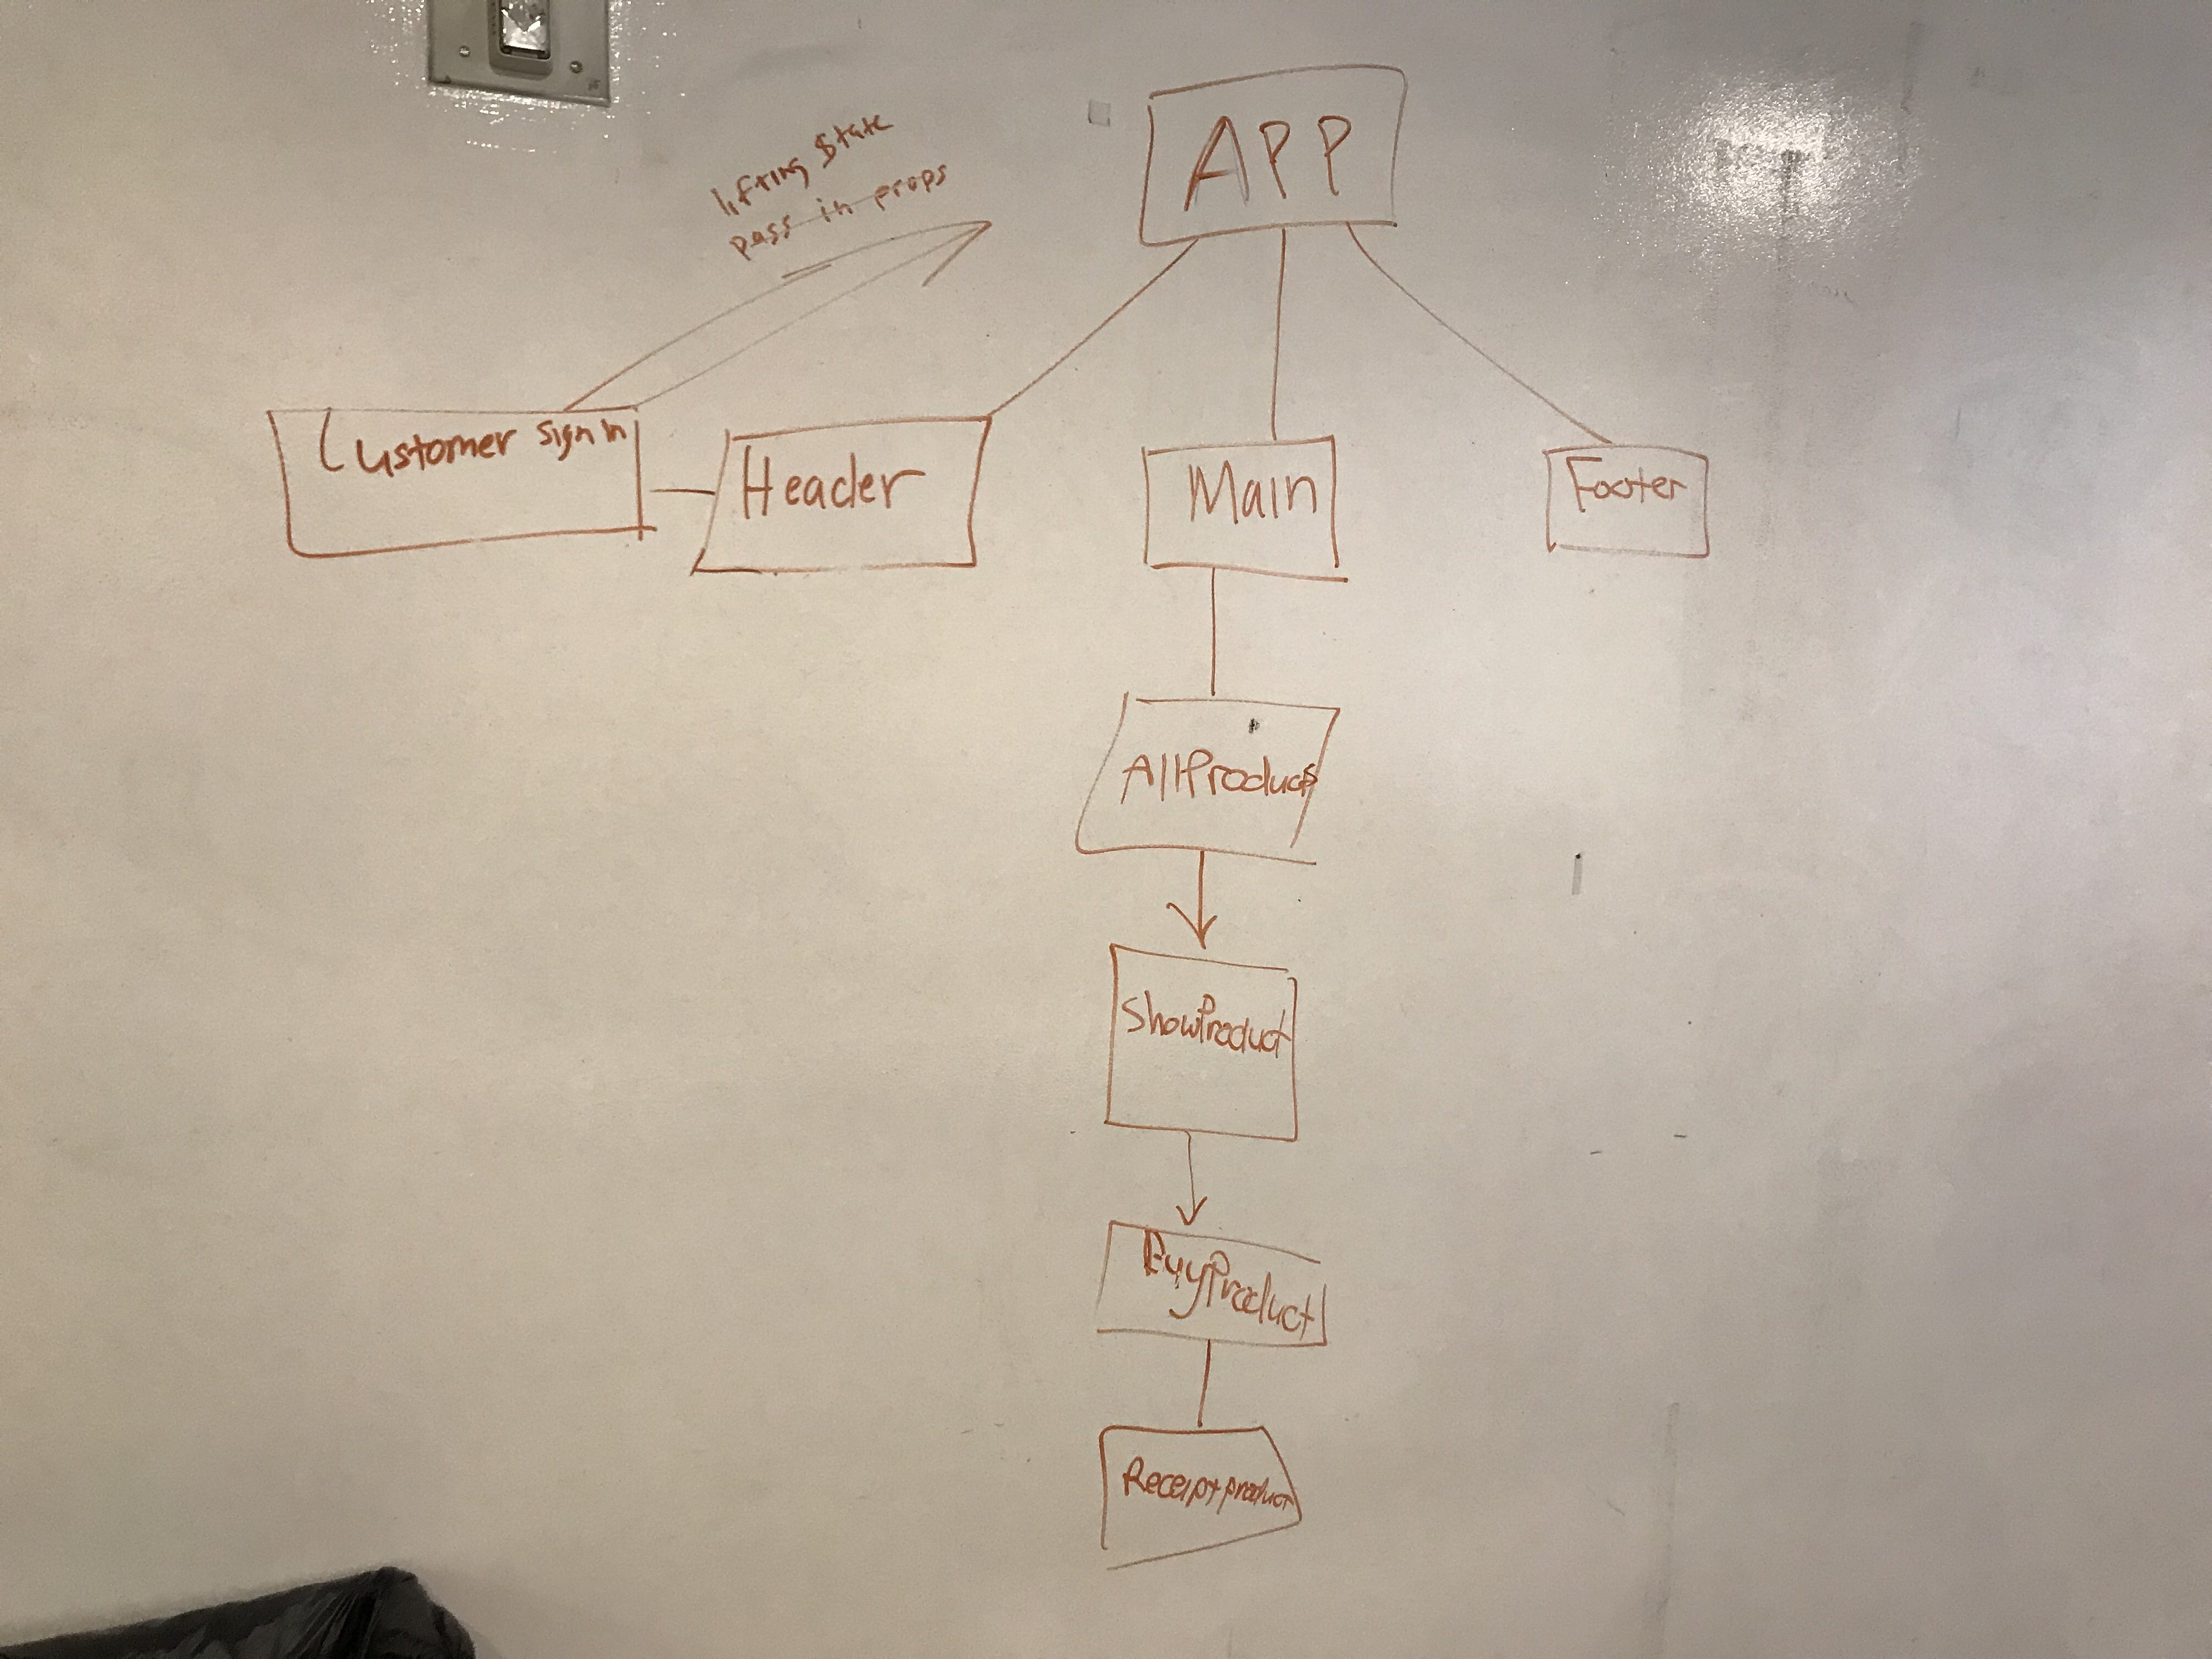 APP
lifting state
pass in props
Customer sign in
Header
Main
Footer
AllProducts
ShowProduct
BuyProduct
Receiptproduct